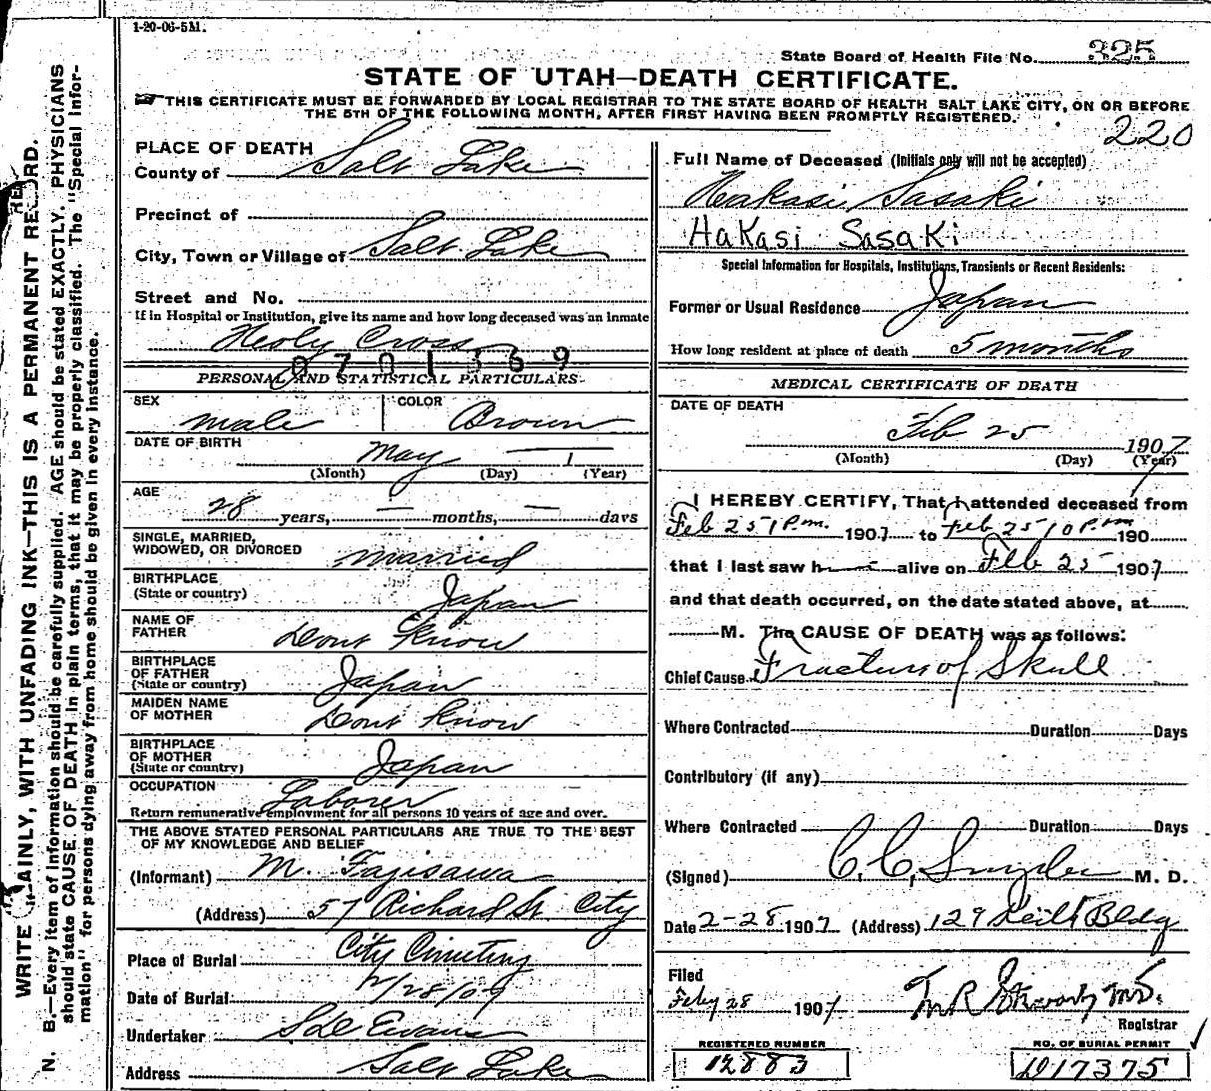 1-20-06-5M.
State Board of Health File No. 325
STATE OF UTAH—DEATH CERTIFICATE.
THIS CERTIFICATE MUST BE FORWARDED BY LOCAL REGISTRAR TO THE STATE BOARD OF HEALTH SALT LAKE CITY, ON OR BEFORE
THE 5TH OF THE FOLLOWING MONTH, AFTER FIRST HAVING BEEN PROMPTLY REGISTERED.
220
PLACE OF DEATH
County of Salt Lake
Precinct of
City, Town or Village of Salt Lake
Street and No.
If in Hospital or Institution, give its name and how long deceased was an inmate
Holy Cross
0701369
PERSONAL AND STATISTICAL PARTICULARS
SEX male COLOR Brown
DATE OF BIRTH May — 1
(Month) (Day) (Year)
AGE
28 years, — months, — days
SINGLE, MARRIED,
WIDOWED, OR DIVORCED married
BIRTHPLACE
(State or country) Japan
NAME OF
FATHER Dont Know
BIRTHPLACE
OF FATHER
(State or country) Japan
MAIDEN NAME
OF MOTHER Dont Know
BIRTHPLACE
OF MOTHER
(State or country) Japan
OCCUPATION Laborer
Return remunerative employment for all persons 10 years of age and over.
THE ABOVE STATED PERSONAL PARTICULARS ARE TRUE TO THE BEST
OF MY KNOWLEDGE AND BELIEF
(Informant) M. Fajisawa
(Address) 57 Richard St. City
Place of Burial City Cemetery
Date of Burial 2/28/07
Undertaker Evans
Address Salt Lake
Full Name of Deceased (Initials only will not be accepted)
Hakasi Sasaki
HaKasi SasaKi
Special Information for Hospitals, Institutions, Transients or Recent Residents:
Former or Usual Residence Japan
How long resident at place of death 5 months
MEDICAL CERTIFICATE OF DEATH
DATE OF DEATH
Feb 25 1907
(Month) (Day) (Year)
I HEREBY CERTIFY, That I attended deceased from
Feb 25 1 P.m. 1907 to Feb 25 10 P.m 190
that I last saw h— alive on Feb 25 1907
and that death occurred, on the date stated above, at
M. The CAUSE OF DEATH was as follows:
Chief Cause Fracture of Skull
Where Contracted Duration Days
Contributory (if any)
Where Contracted Duration Days
(Signed) C. C. Snyder M. D.
Date 2-28 1907 (Address) 129 Keith Bldg
Filed
Feby 28 1907
Registrar
REGISTERED NUMBER
12883
NO. OF BURIAL PERMIT
D17375
N. B.—Every item of information should be carefully supplied. AGE should be stated EXACTLY. PHYSICIANS
should state CAUSE OF DEATH in plain terms, that it may be properly classified. The "Special Infor-
mation" for persons dying away from home should be given in every instance.